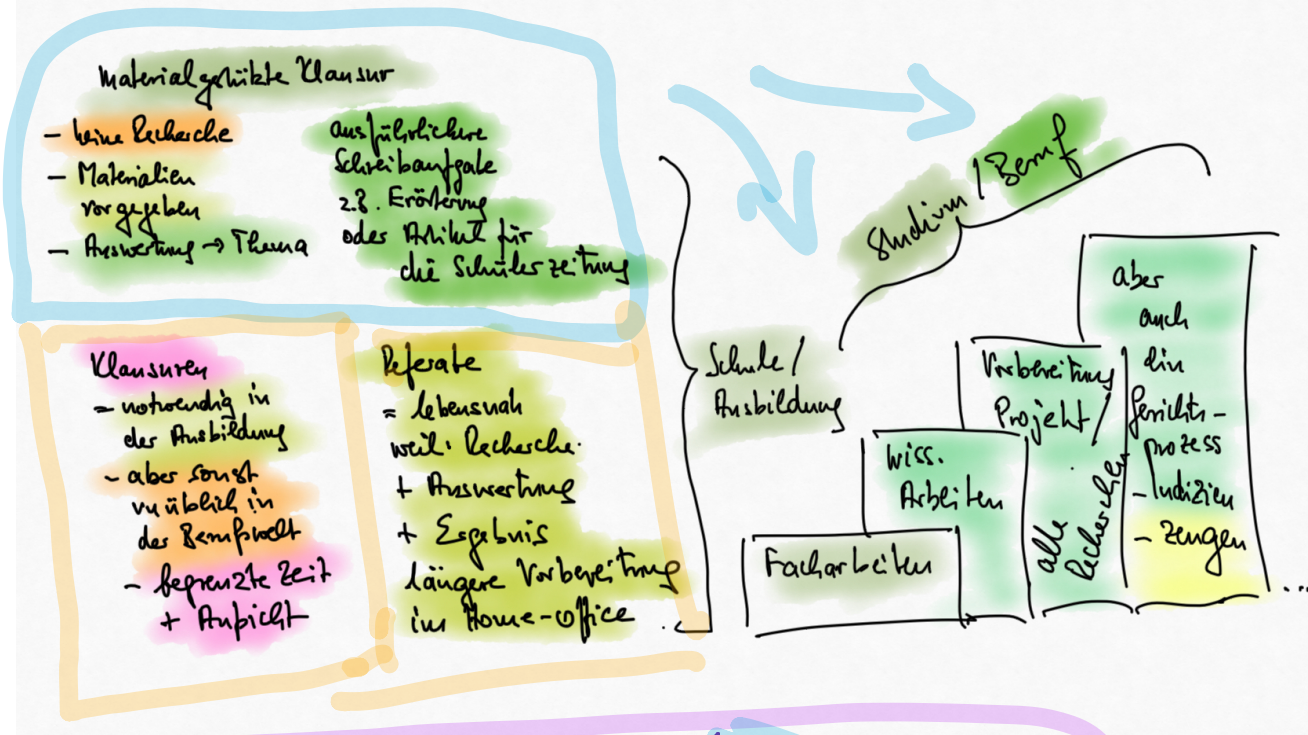 Materialgestützte Klausur
- keine Recherche
- Materialien
vorgegeben
- Auswertung → Thema
ausführlichere
Schreibaufgabe
z.B. Erörterung
oder Artikel für
die Schülerzeitung
Klausuren
- notwendig in
der Ausbildung
- aber sonst
unüblich in
der Berufswelt
- begrenzte Zeit
+ Aufsicht
Referate
= lebensnah
weil: Recherche
+ Auswertung
+ Ergebnis
längere Vorbereitung
im Home-Office
Schule /
Ausbildung
Studium / Beruf
Facharbeiten
wiss.
Arbeiten
Vorbereitung
Projekt /
alle
Recherchen
aber
auch
ein
Gerichts-
prozess
- Indizien
- Zeugen
...